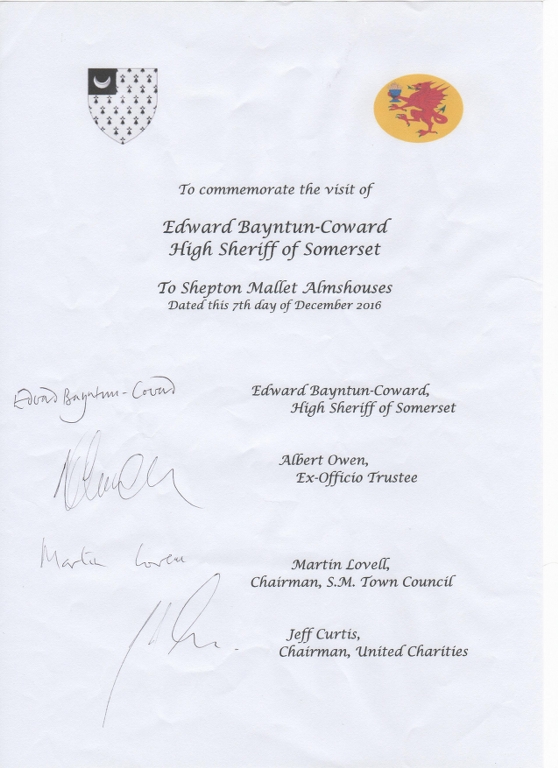 To commemorate the visit of
Edward Bayntun-Coward
High Sheriff of Somerset
To Shepton Mallet Almshouses
Dated this 7th day of December 2016
Edward Bayntun-Coward
Edward Bayntun-Coward,
High Sheriff of Somerset
Albert Owen,
Ex-Officio Trustee
Martin Lovell
Martin Lovell,
Chairman, S.M. Town Council
Jeff Curtis,
Chairman, United Charities